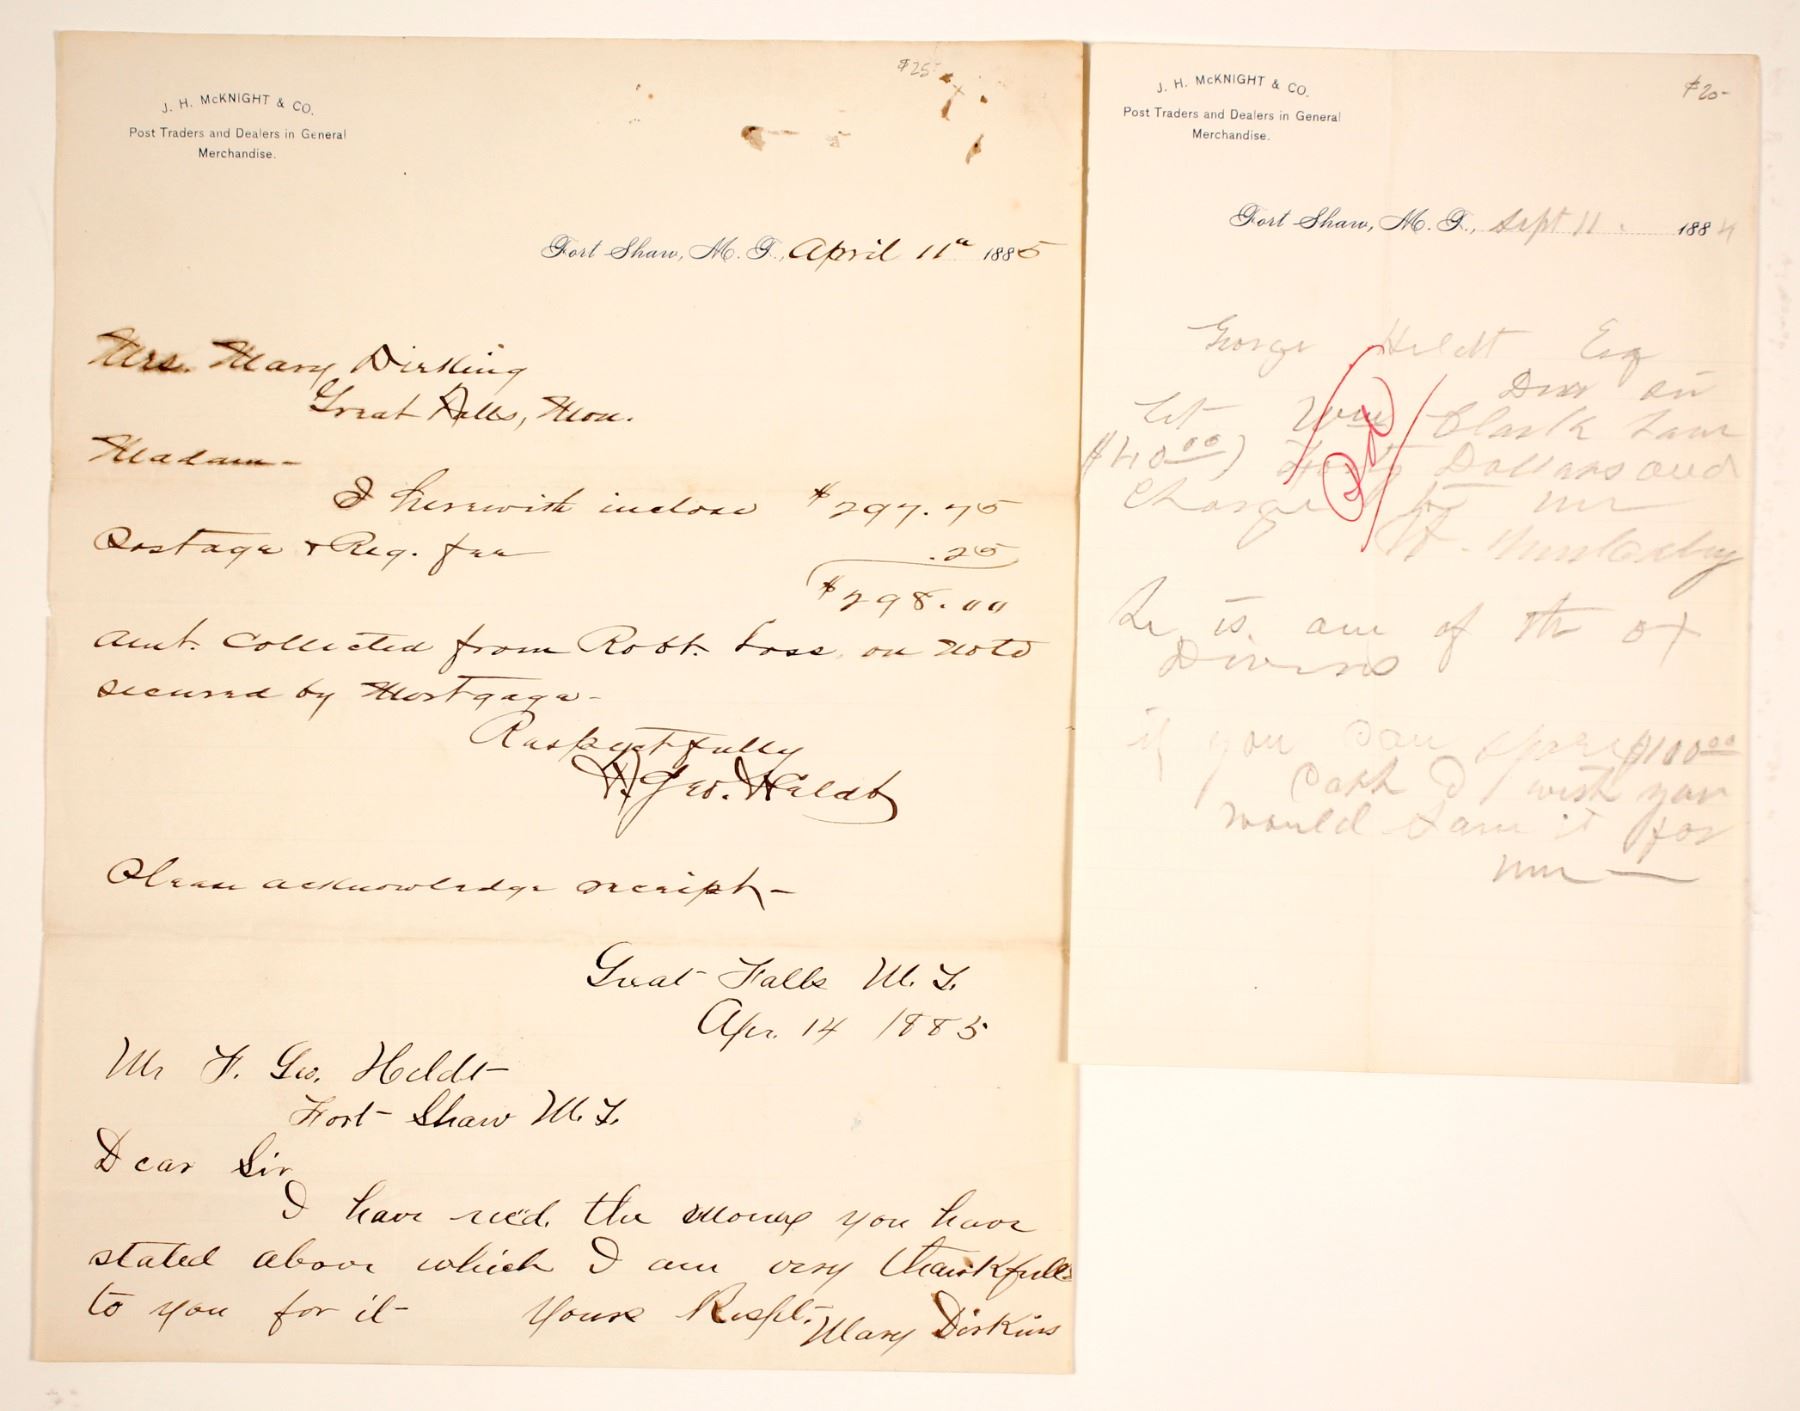 $25-
J. H. McKNIGHT & CO.
Post Traders and Dealers in General
Merchandise.
Fort Shaw, M. T., April 11th 1885
Mrs. Mary Dirking
Great Falls, Mon.
Madam-
I herewith inclose $297.75
Postage & Reg. fee .25
$298.00
Amt. Collected from Robt. on note
secured by Mortgage-
Respectfully
F. Geo. Heldt
Please acknowledge receipt-
Great Falls M. T.
Apr. 14 1885
Mr F. Geo. Heldt
Fort Shaw M. T.
Dear Sir
I have rec'd. the money you have
stated above which I am very thankfull
to you for it Yours Respt.
Mary Dirkins
$20-
J. H. McKNIGHT & CO.
Post Traders and Dealers in General
Merchandise.
Fort Shaw, M. T., Sept 11. 1884
George Heldt Esq
Dear Sir
Let Wm Clark have
$40.00) Forty Dollars and
Charge to me
He is one of the ox
Drivers
if you can spare $100.00
Cash I wish you
would save it for
me —